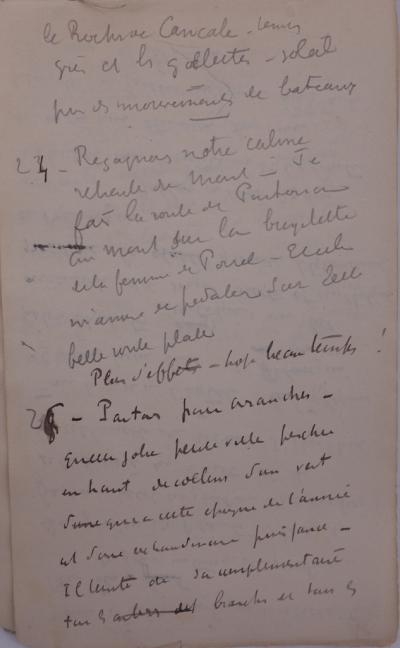 le Rocher Cancale - temps
gris et les goélettes - soleil
pas de mouvements de bateaux
24 - Regagnons notre calme
retraite du Mont - Je
fais la route de Pontorson
au mont sur la bicyclette
de la femme de
m'amuse de pedaler sur cette
belle route plate
Plus d'effets - trop beau temps !
25 - Partons pour avranches -
quelle jolie petite ville perchée
en haut de collines d'un vert
dune qui a cette epoque de l'année
est d'une extraordinaire puissance -
Il de sa complementaire
tous les branches et tous les